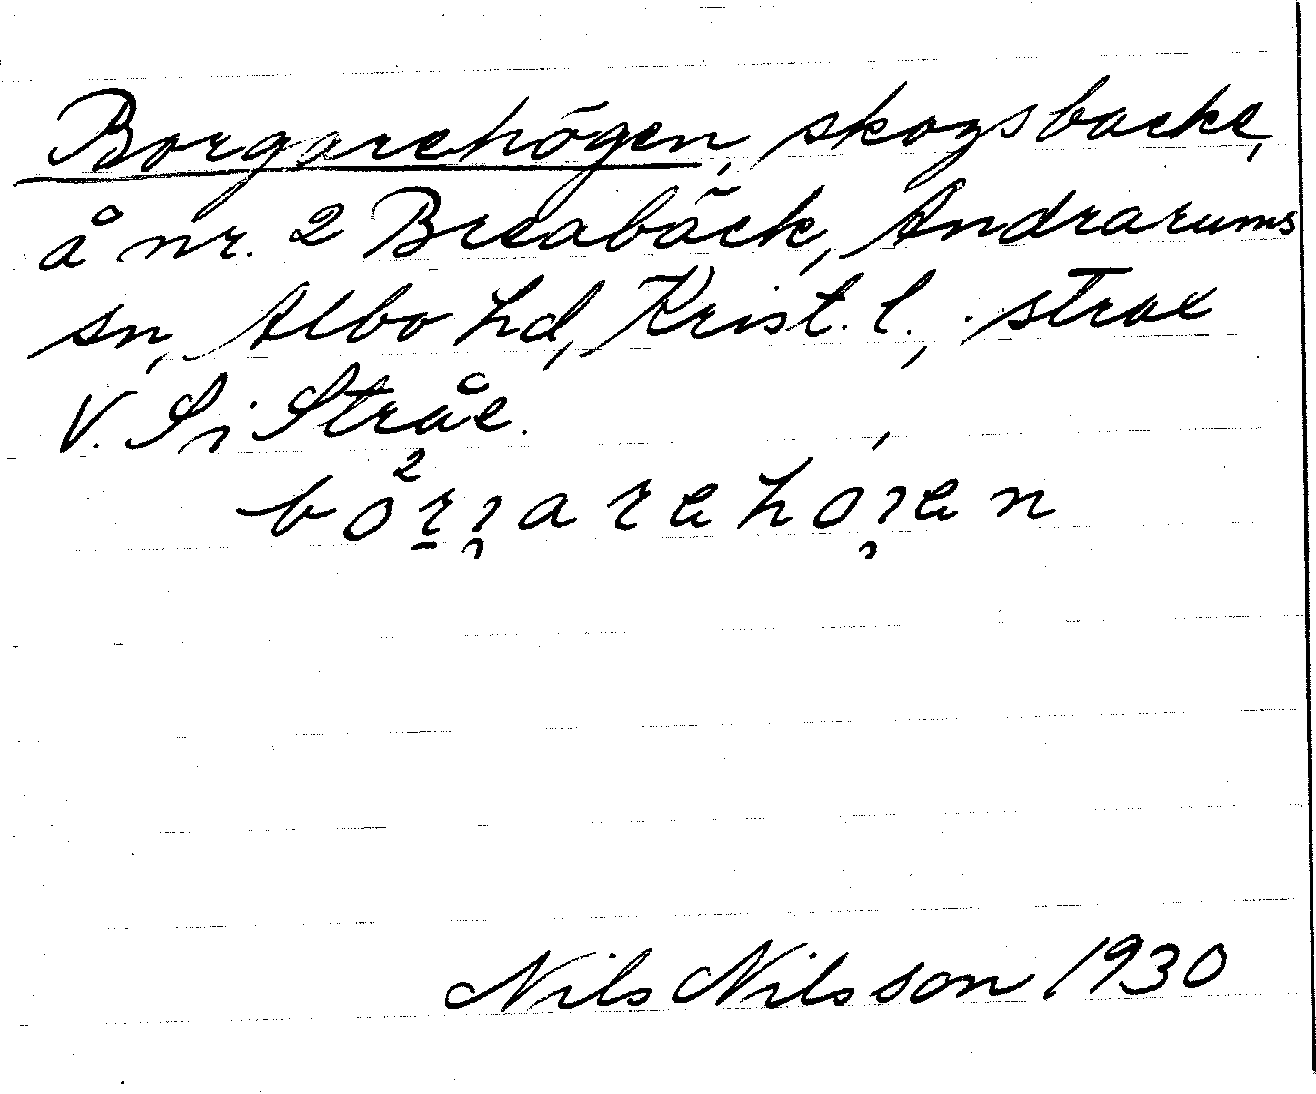 Borgarehögen, skogsbacke,
å nr. 2 Breabäck, Andrarums
sn, Albo hd, Krist. l., strax
V. Si Stråe.
Nils Nilsson 1930